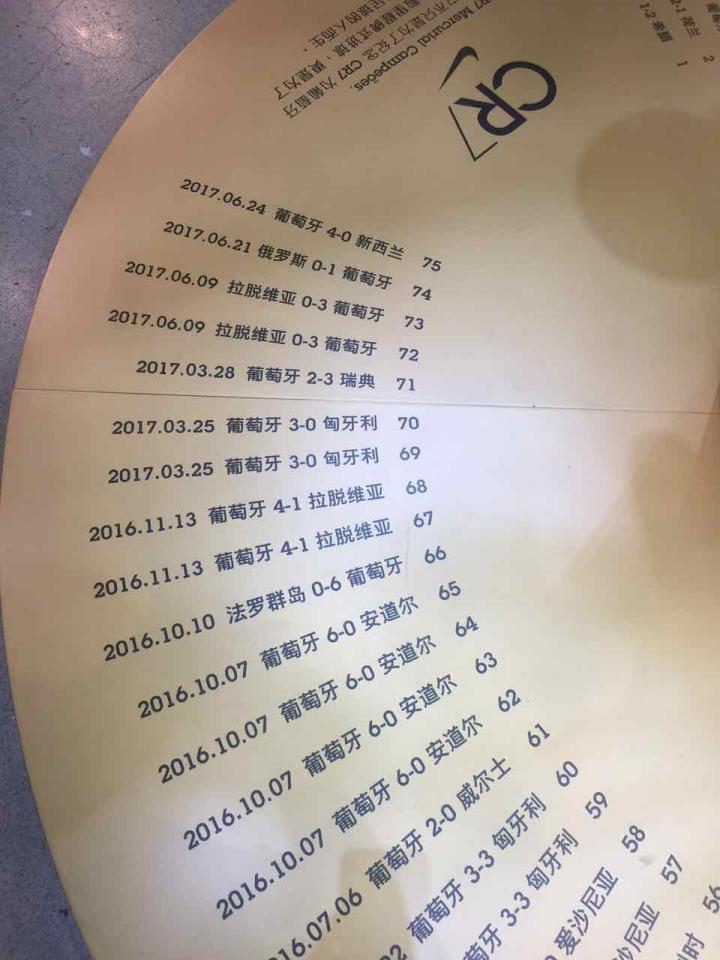 1-2 希腊 1
2-1 荷兰 2
CR7 Mercurial Campeões,
不只是为了纪念 CR7 为葡萄牙
CR7
2017.06.24 葡萄牙 4-0 新西兰 75
2017.06.21 俄罗斯 0-1 葡萄牙 74
2017.06.09 拉脱维亚 0-3 葡萄牙 73
2017.06.09 拉脱维亚 0-3 葡萄牙 72
2017.03.28 葡萄牙 2-3 瑞典 71
2017.03.25 葡萄牙 3-0 匈牙利 70
2017.03.25 葡萄牙 3-0 匈牙利 69
2016.11.13 葡萄牙 4-1 拉脱维亚 68
2016.11.13 葡萄牙 4-1 拉脱维亚 67
2016.10.10 法罗群岛 0-6 葡萄牙 66
2016.10.07 葡萄牙 6-0 安道尔 65
2016.10.07 葡萄牙 6-0 安道尔 64
2016.10.07 葡萄牙 6-0 安道尔 63
2016.10.07 葡萄牙 6-0 安道尔 62
16.07.06 葡萄牙 2-0 威尔士 61
22 葡萄牙 3-3 匈牙利 60
萄牙 3-3 匈牙利 59
爱沙尼亚 58
沙尼亚 57
时 56